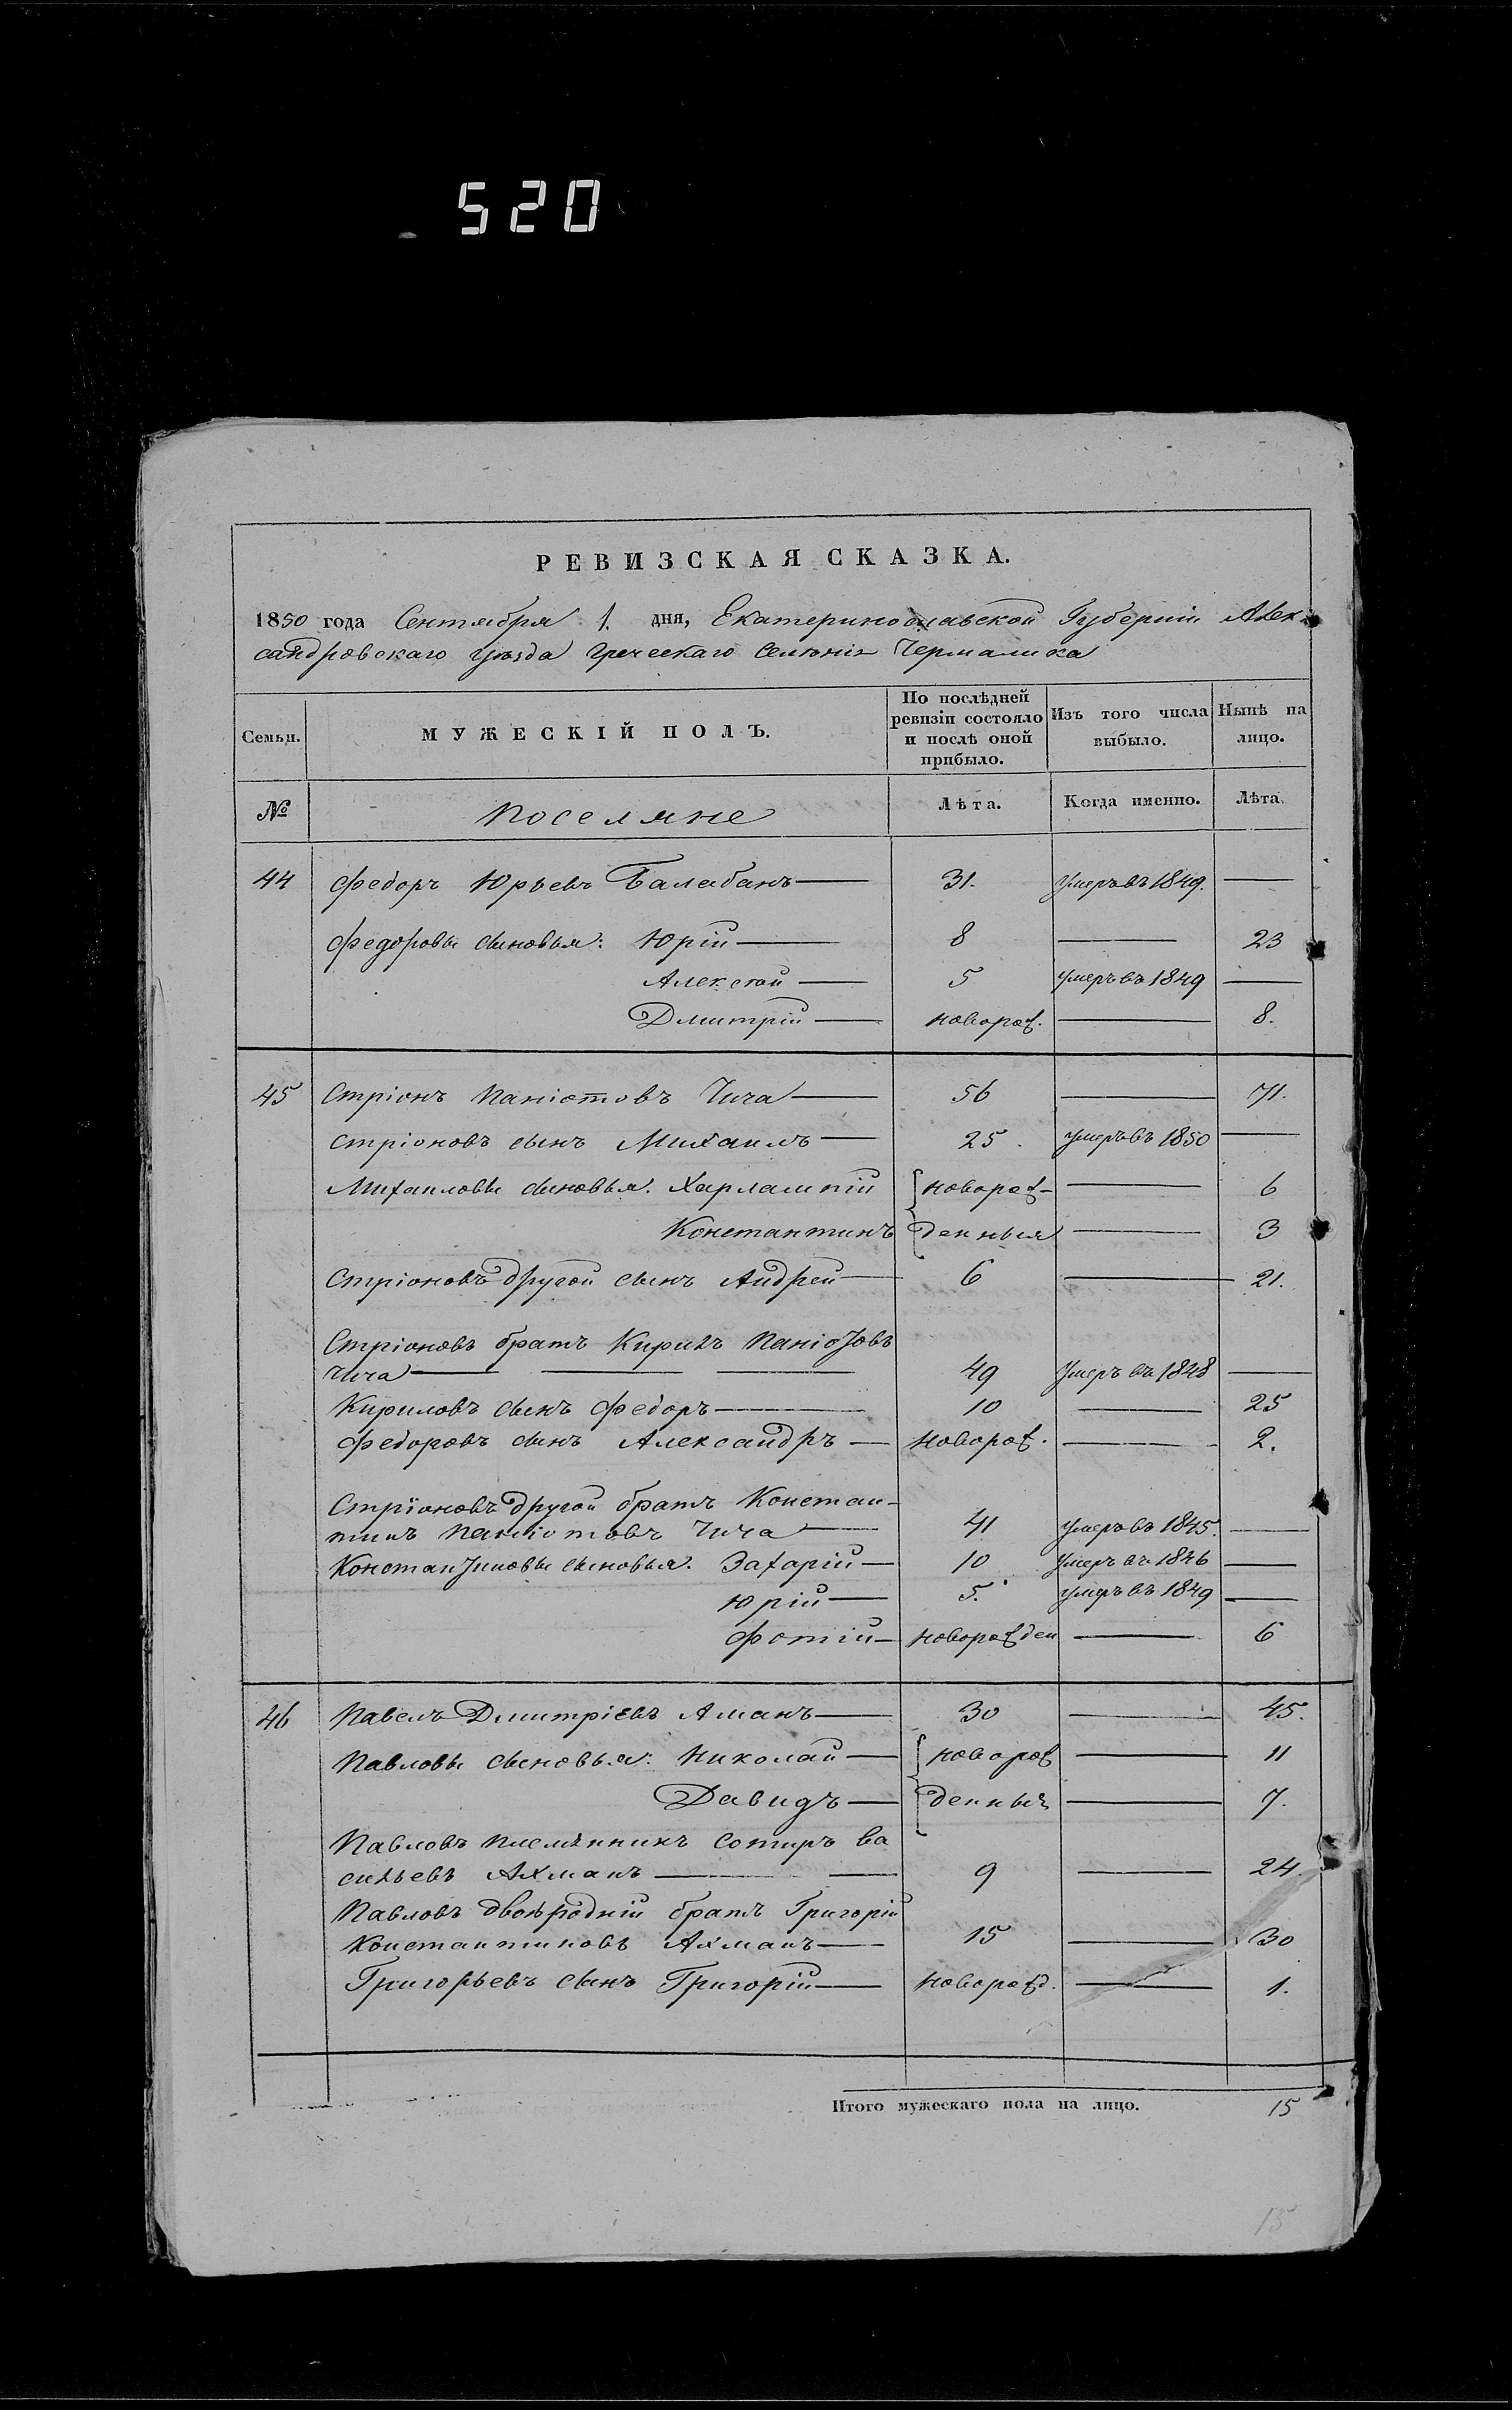 520
РЕВИЗСКАЯ СКАЗКА.
1850 года Сентября 1. дня, Екатеринославской Губернiи Алек-
сандровскаго уѣзда Греческаго Селенiя Чермалика
Семьи.
МУЖЕСКIЙ ПОЛЪ.
По послѣдней ревизiи состояло и послѣ оной прибыло.
Изъ того числа выбыло.
Нынѣ на лицо.
№
Поселяне
Лѣта.
Когда именно.
Лѣта.
44 Федоръ Юрьевъ Балабанъ — 31. умеръ въ 1849. —
Федоровы сыновья: Юрiй — 8 — 23
Алексѣй — 5 умеръ въ 1849 —
Дмитрiй — новорож. — 8.
45 Стрiонъ Панiотовъ Чича — 56 — 71.
Стрiоновъ сынъ Михаилъ — 25. умеръ въ 1850 —
Михаиловы сыновья. Харлампiй новорож- — 6
Константинъ денныя — 3
Стрiоновъ другой сынъ Андрей — 6 — 21.
Стрiоновъ братъ Кирилъ Панiотовъ
Чича — — — 49 умеръ въ 1848 —
Кириловъ сынъ Федоръ — 10 — 25
Федоровъ сынъ Александръ — новорож. — 2.
Стрiоновъ другой братъ Констан-
тинъ Панiотовъ Чича — 41 умеръ въ 1845. —
Константиновы сыновья. Захарiй — 10 умеръ въ 1846 —
Юрiй — 5. умеръ въ 1849 —
Фотiй — новорожден — 6
46 Павелъ Дмитрiевъ Аманъ — 30 — 45.
Павловы сыновья: Николай — новорож — 11
Давидъ — денныя — 7.
Павловъ племянникъ Сотиръ Ва
сильевъ Ахманъ — — 9 — 24.
Павловъ двоюроднiй братъ Григорiй
Константиновъ Ахманъ — 15 — 30
Григорьевъ сынъ Григорiй — новорожд. — 1.
Итого мужескаго пола на лицо. 15
15